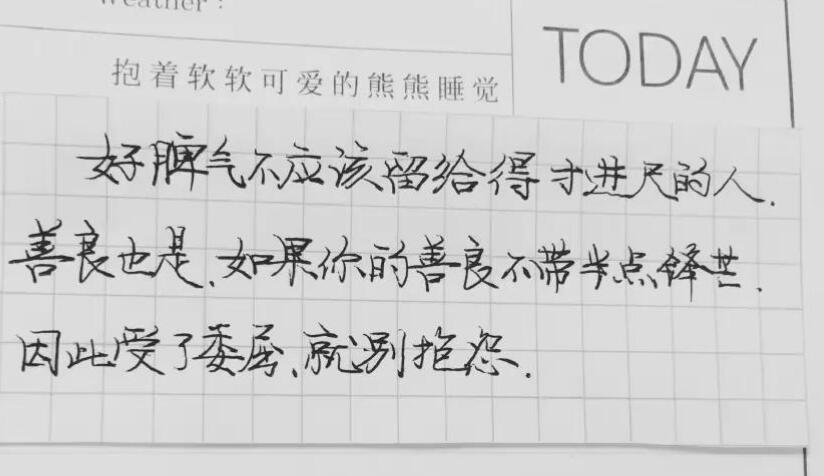 Weather :
TODAY
抱着软软可爱的熊熊睡觉
好脾气不应该留给得寸进尺的人.
善良也是.如果你的善良不带半点锋芒.
因此受了委屈、就别抱怨.